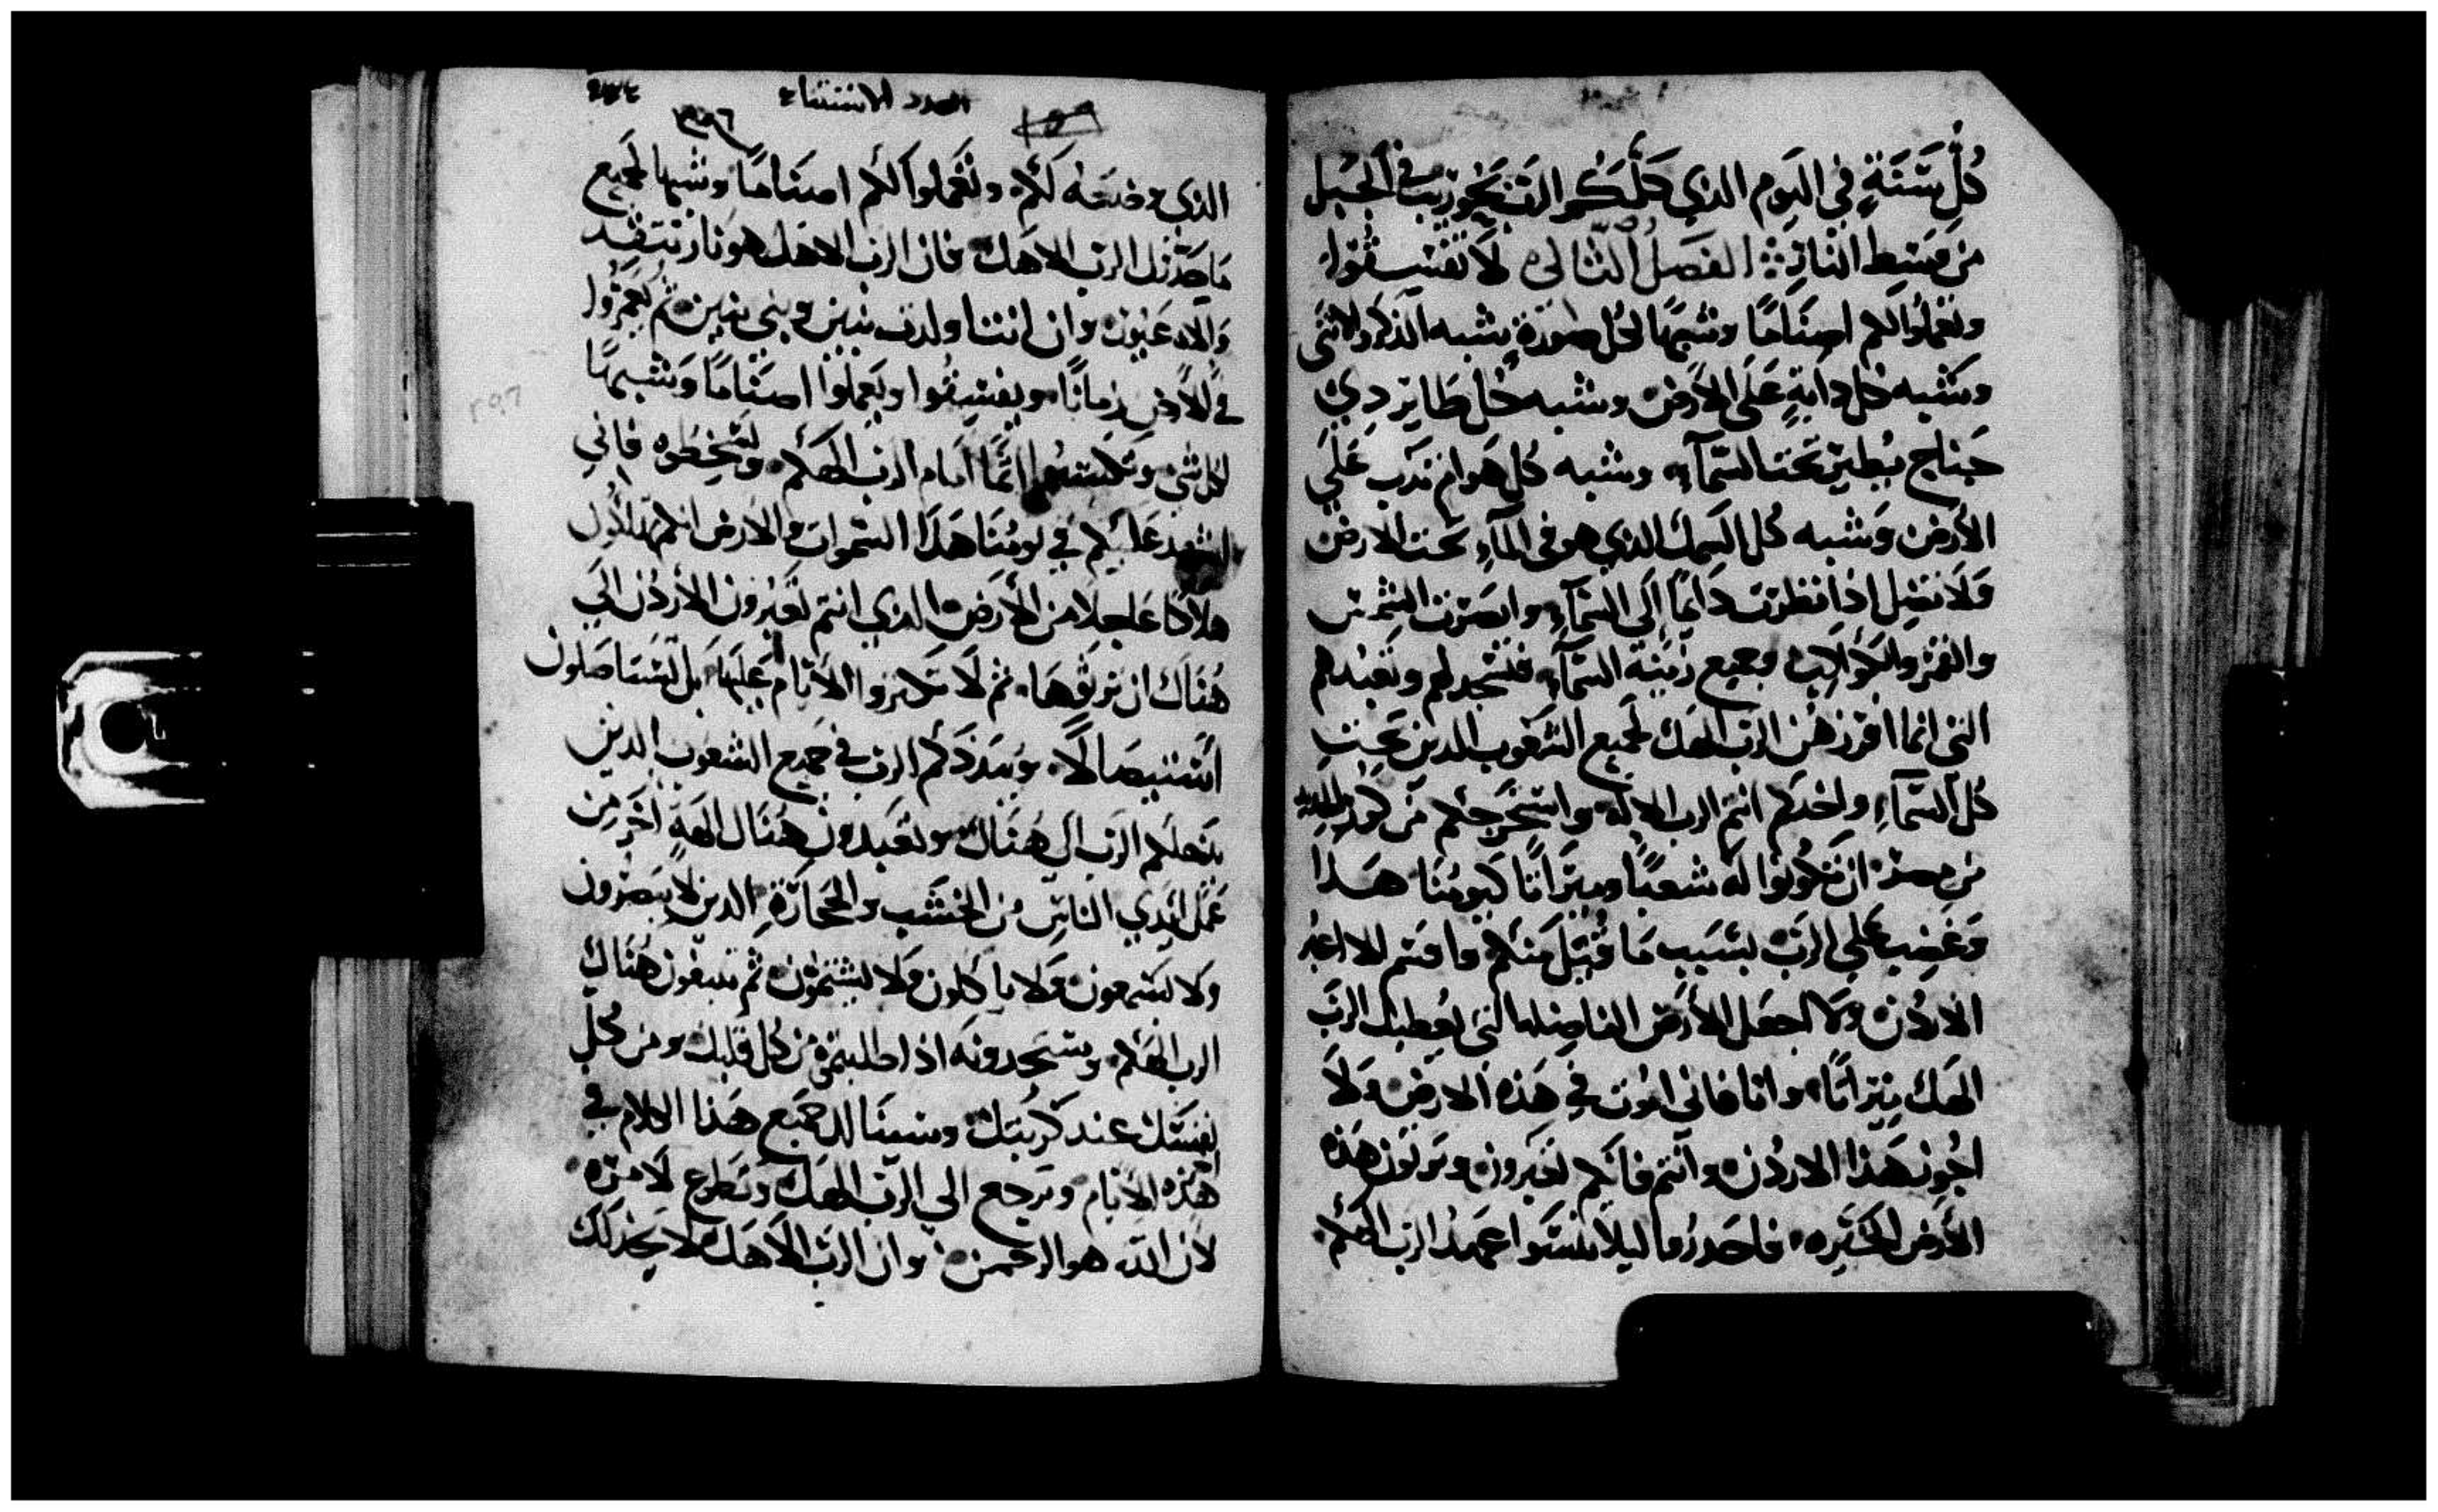 كُلِّ سَنَةٍ في اليَوم الذي كَلَّمَكُم الرَبّ بحُوريب في الجَبل
من وَسَط النار ۞ الفصلُ الثالث لَا تفسِقُوا
وتعملوا لكم اصنامًا وشبهًا لكل صورة يشبه الذكر والانثى
وشبه كل دابةٍ عَلَى الأرض وشبه كل طاير دي
جناح يُطير تحت السّمآء وشبه كُل هَوام تدب عَلَي
الأرض وَشبه كُل السَمك الذي هو في المآء تحت الارض
وَلا تضل اذا نظرت دايمًا إلَى السّمآء وابصرت الشمس
والقمر والكواكب وجميع زينة السّمآء فتسجد لهم وتعبُدهم
التي انما افرزهن الرب الهَك لجميع الشعوب الدين تحت
كُل السّمآءِ واخدكم انتم الرب الاله واستخرجكم من كور الحديد
من مصر ان تكونوا له شعبًا وميراتًا كيومُنا هَدا
وَغَضِب علي الربّ بسَبب مَا قُبل منكم واقسم الا اعبُر
الاردُن وَلا ادخل الأرض الفاضِله التي يُعطيك الربّ
الهَك ميراتًا وانا فاني امُوت في هَذه الارض وَلا
اجُوز هَذا الاردُن وانتم فانكم تعبرون وترتون هَذه
الأرض الخيّره فاحدرُوا ليلا تنسَوا عَهد الرب الهَكم
العدد الاستثناء
الذي وضعَهُ لكُم وتعملوا لكم اصنامًا وشبهًا لجميع
مَا حدّرك الرب الاهَك فان الرب الاهَك هو نار تتقد
وَالاه غيور وان انت اولدت بنين وبني بنين ثم يُعمروا
في الأرض زمانًا ويفسِقُوا ويَعملوا اصنَامًا وَشبهًا
لكل شي وتكتسبوا اثمًا امَام الرب الهَكم وتُسخِطوه فاني
اشهد عَليكم في يومُنا هَذا السّموات والارض انكم تهلكون
هلاكًا عاجلا من الأرض الذي انتم تعبرون الأردُن الَي
هُنَاك ان ترتُوهَا ثم لَا تكتروا الأيام عَليهَا بل تستاصَلون
اَستيصَالًا ويبَدّدَكم الرب في جميع الشعوب الدين
يدخلكم الرّب الي هُنَاك وتعبدون هُنَاك الهَة اُخَر من
عَمل ايدي الناس من الخشَب والحجارَة الدين لا يبصرون
وَلا يسمعون وَلا ياكلون وَلا يشتمون ثم تبتغون هُنَاك
الرب الهَكم وستجدونه اذا طلبتمُوه من كل قلبك ومن كُلّ
نفسَك عند كربتك وسينالك جميع هَذا الكلام في
اخر هَذه الأيام وترجع الي الرّب الهَك وتطيع لامره
لان الله هو الرحمن وان الربّ الاهَك لا يخدلك